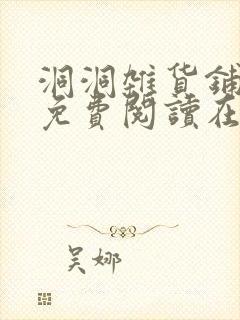 洞洞雜货鋪
免費閱讀在
吴娜